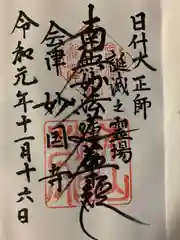 日什大正師
誕滅之霊場
南無妙法蓮華経
会津 妙国寺
令和元年十一月十六日